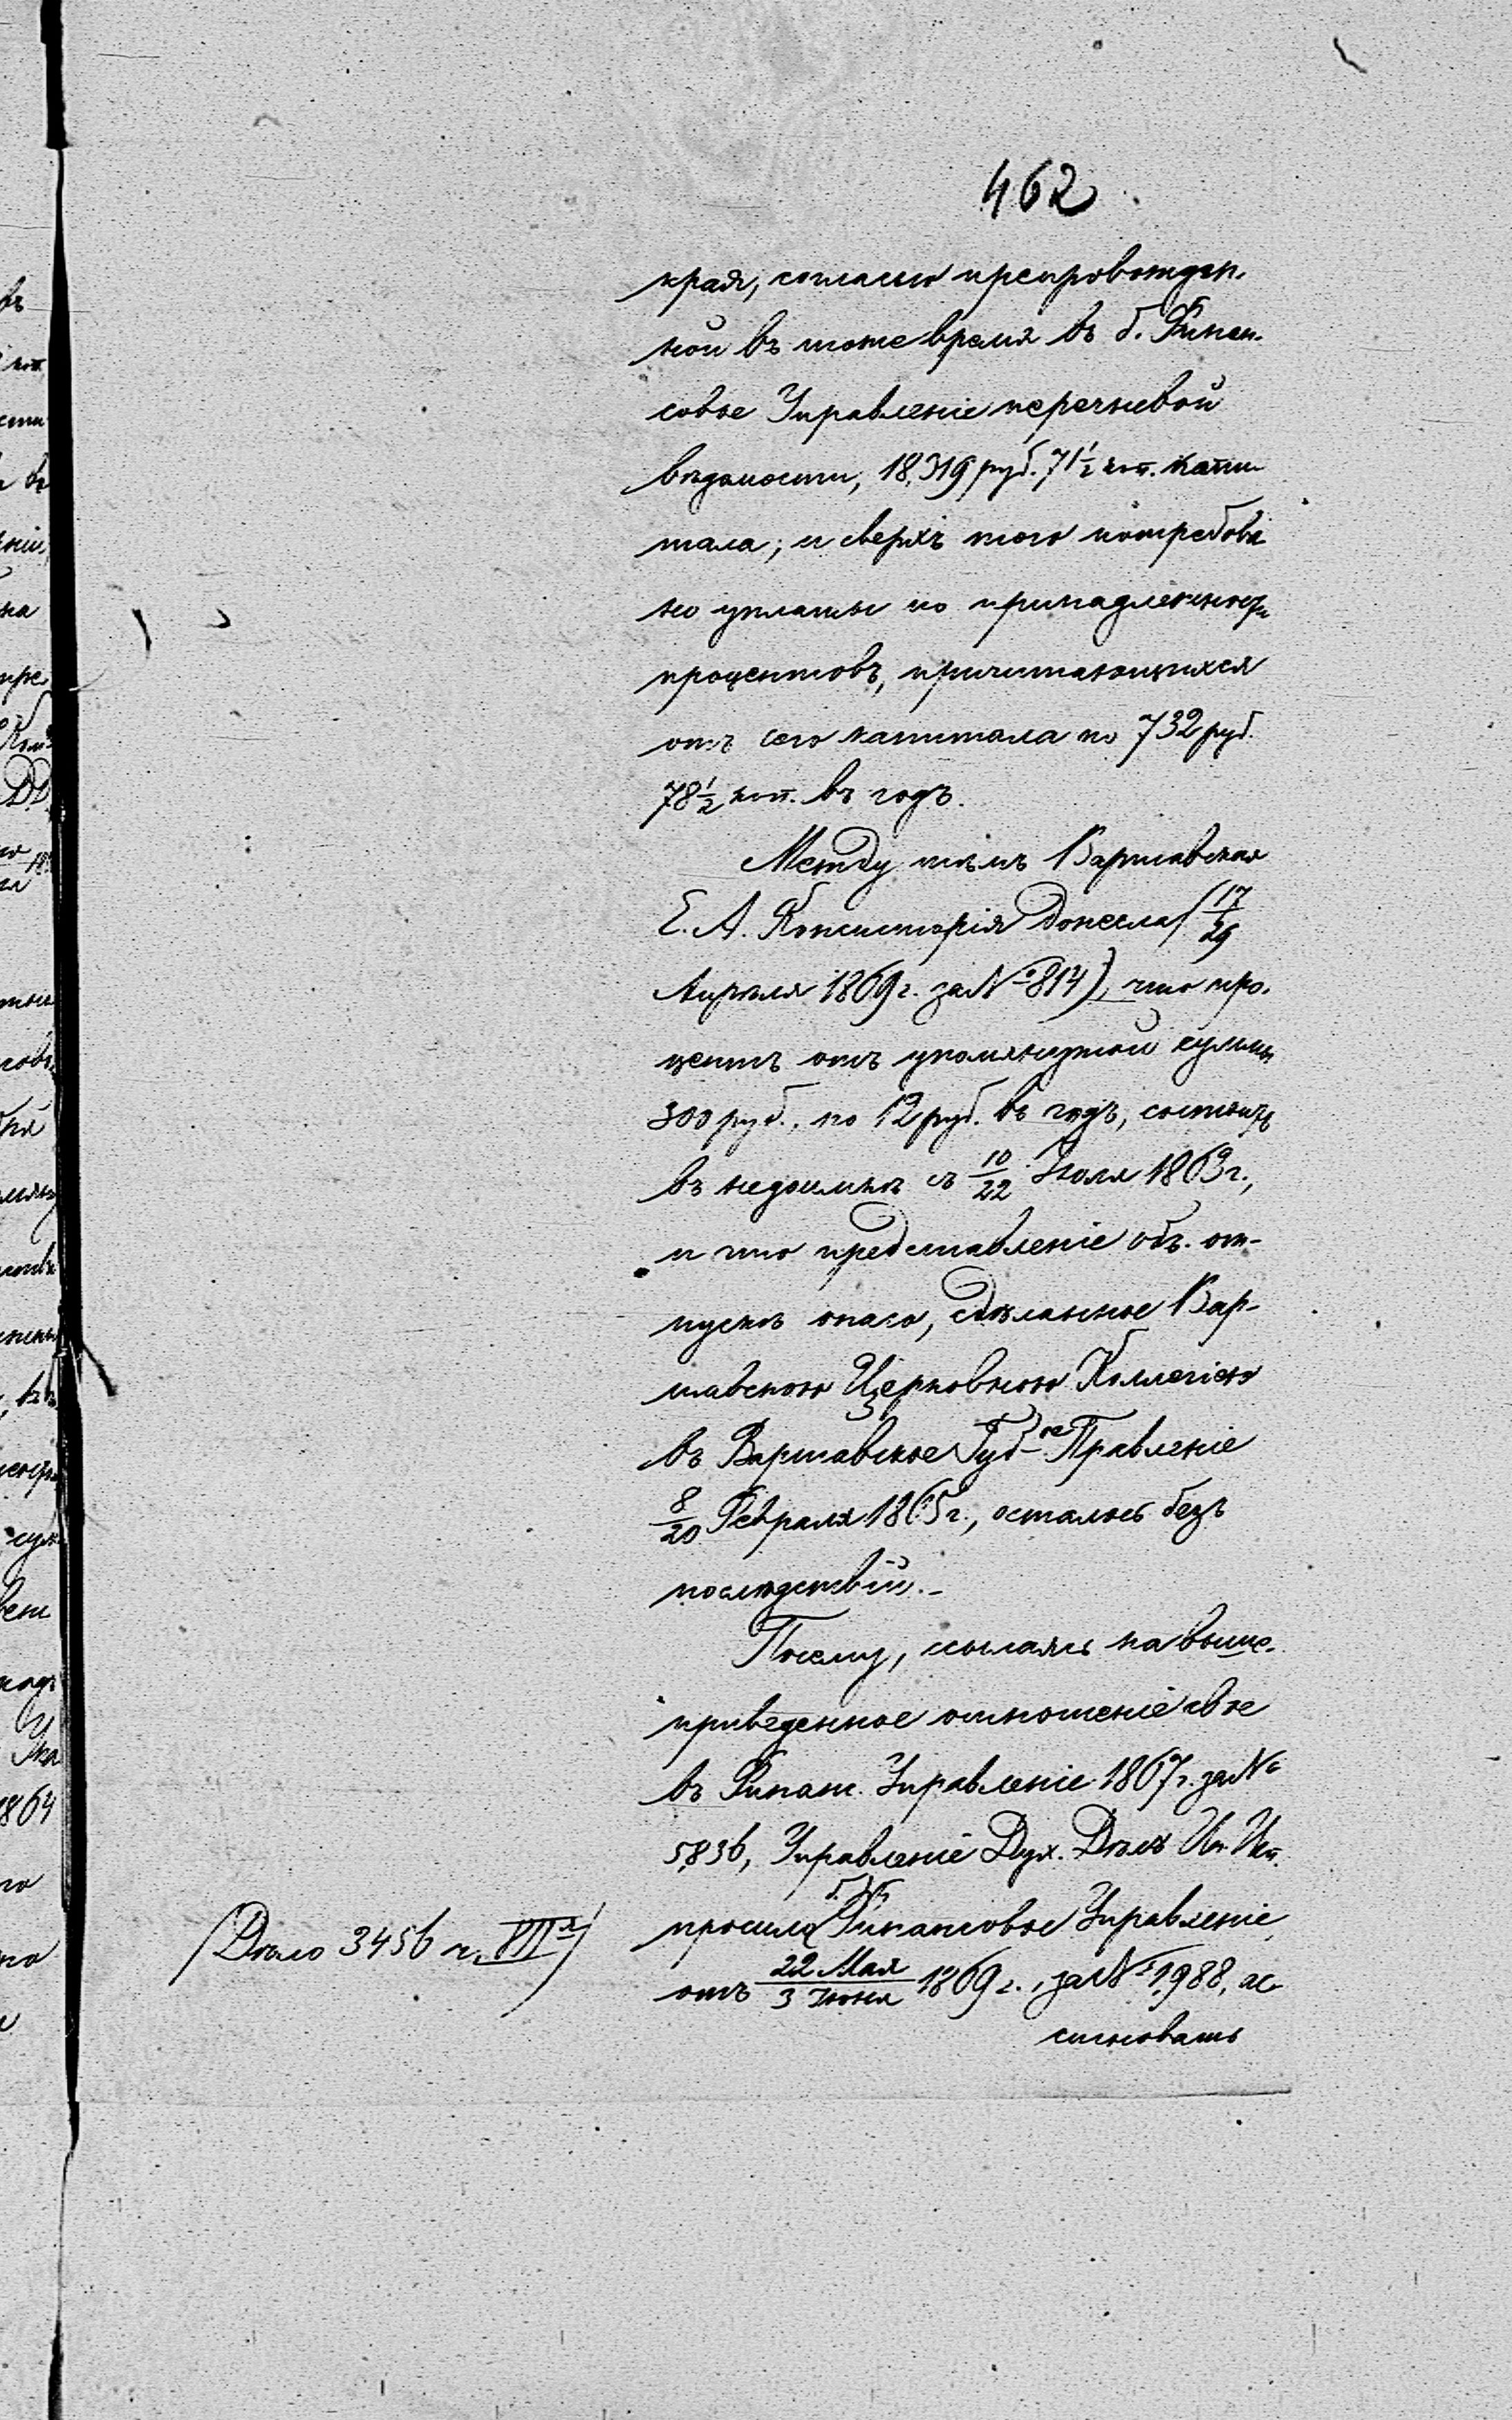 462
края, согласно препровожден-
ной въ тоже время въ б. Финан-
совое Управленіе перечневой
вѣдомости, 18,319 руб. 71½ коп. капи-
тала; и сверхъ того потребова
но уплаты по принадлежности
процентовъ, причитающихся
отъ сего капитала по 732 руб.
78½ коп. въ годъ.
Между тѣмъ Варшавская
Е. А. Консисторія донесла (17/29
Апрѣля 1869 г. за № 814), что про-
центъ отъ упомянутой суммы
300 руб., по 12 руб. въ годъ, состоитъ
въ недоимкѣ съ 10/22 Іюля 1863 г.,
и что представленіе объ от-
пускѣ онаго, сдѣланное Вар-
шавскою Церковною Коллегіею
въ Варшавское Губ-ое Правленіе
8/20 Февраля 1865 г., осталось безъ
послѣдствій.-
Посему, ссылаясь на выше-
приведенное отношеніе свое
въ Финанс. Управленіе 1867 г. за №
5,836, Управленіе Дух. Дѣлъ Ин. Исп.
просило б. Финансовое Управленіе,
(Дѣло 3456 ч. VIII)
отъ 22 Мая/3 Іюня 1869 г., за № 1,988, ас-
сигновать